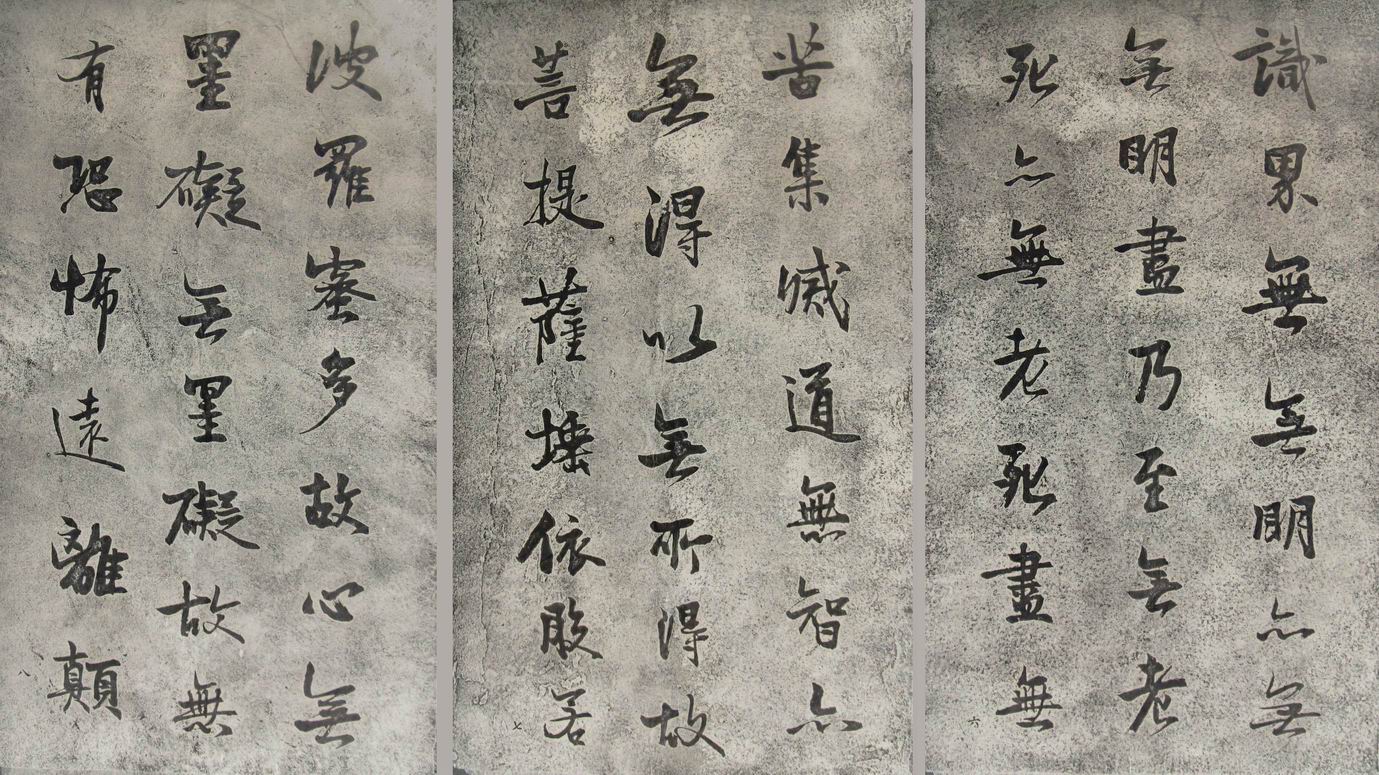 識界無無明亦無
無明盡乃至無老
死亦無老死盡無
六
苦集滅道無智亦
無得以無所得故
菩提薩埵依般若
七
波羅蜜多故心無
罣礙無罣礙故無
有恐怖遠離顛
八